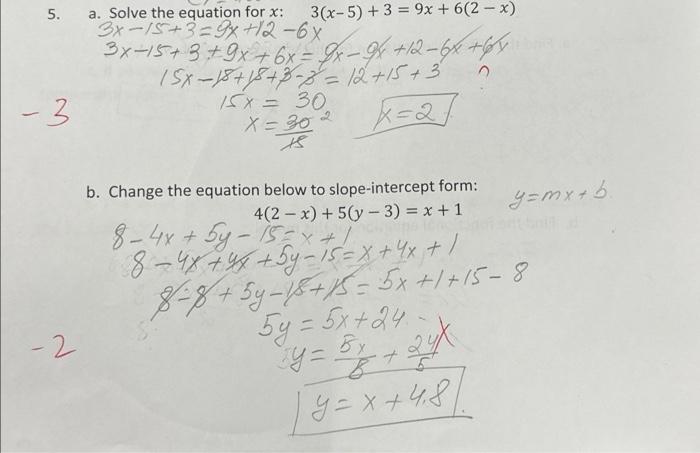 5. a. Solve the equation for x: 3(x−5) + 3 = 9x + 6(2 − x)
3x−15+3=9x+12−6x
3x−15+3+9x+6x=9x−9x+12−6x+6x
15x−18+18+3−3=12+15+3
−3
15x = 30
x = 30/15 2
x=2
b. Change the equation below to slope-intercept form:
y=mx+b
4(2 − x) + 5(y − 3) = x + 1
8−4x+5y−15=x+1
8−4x+4x+5y−15=x+4x+1
8−8+5y−15+15=5x+1+15−8
5y=5x+24
−2
y=5x/5+24/5
y=x+4.8